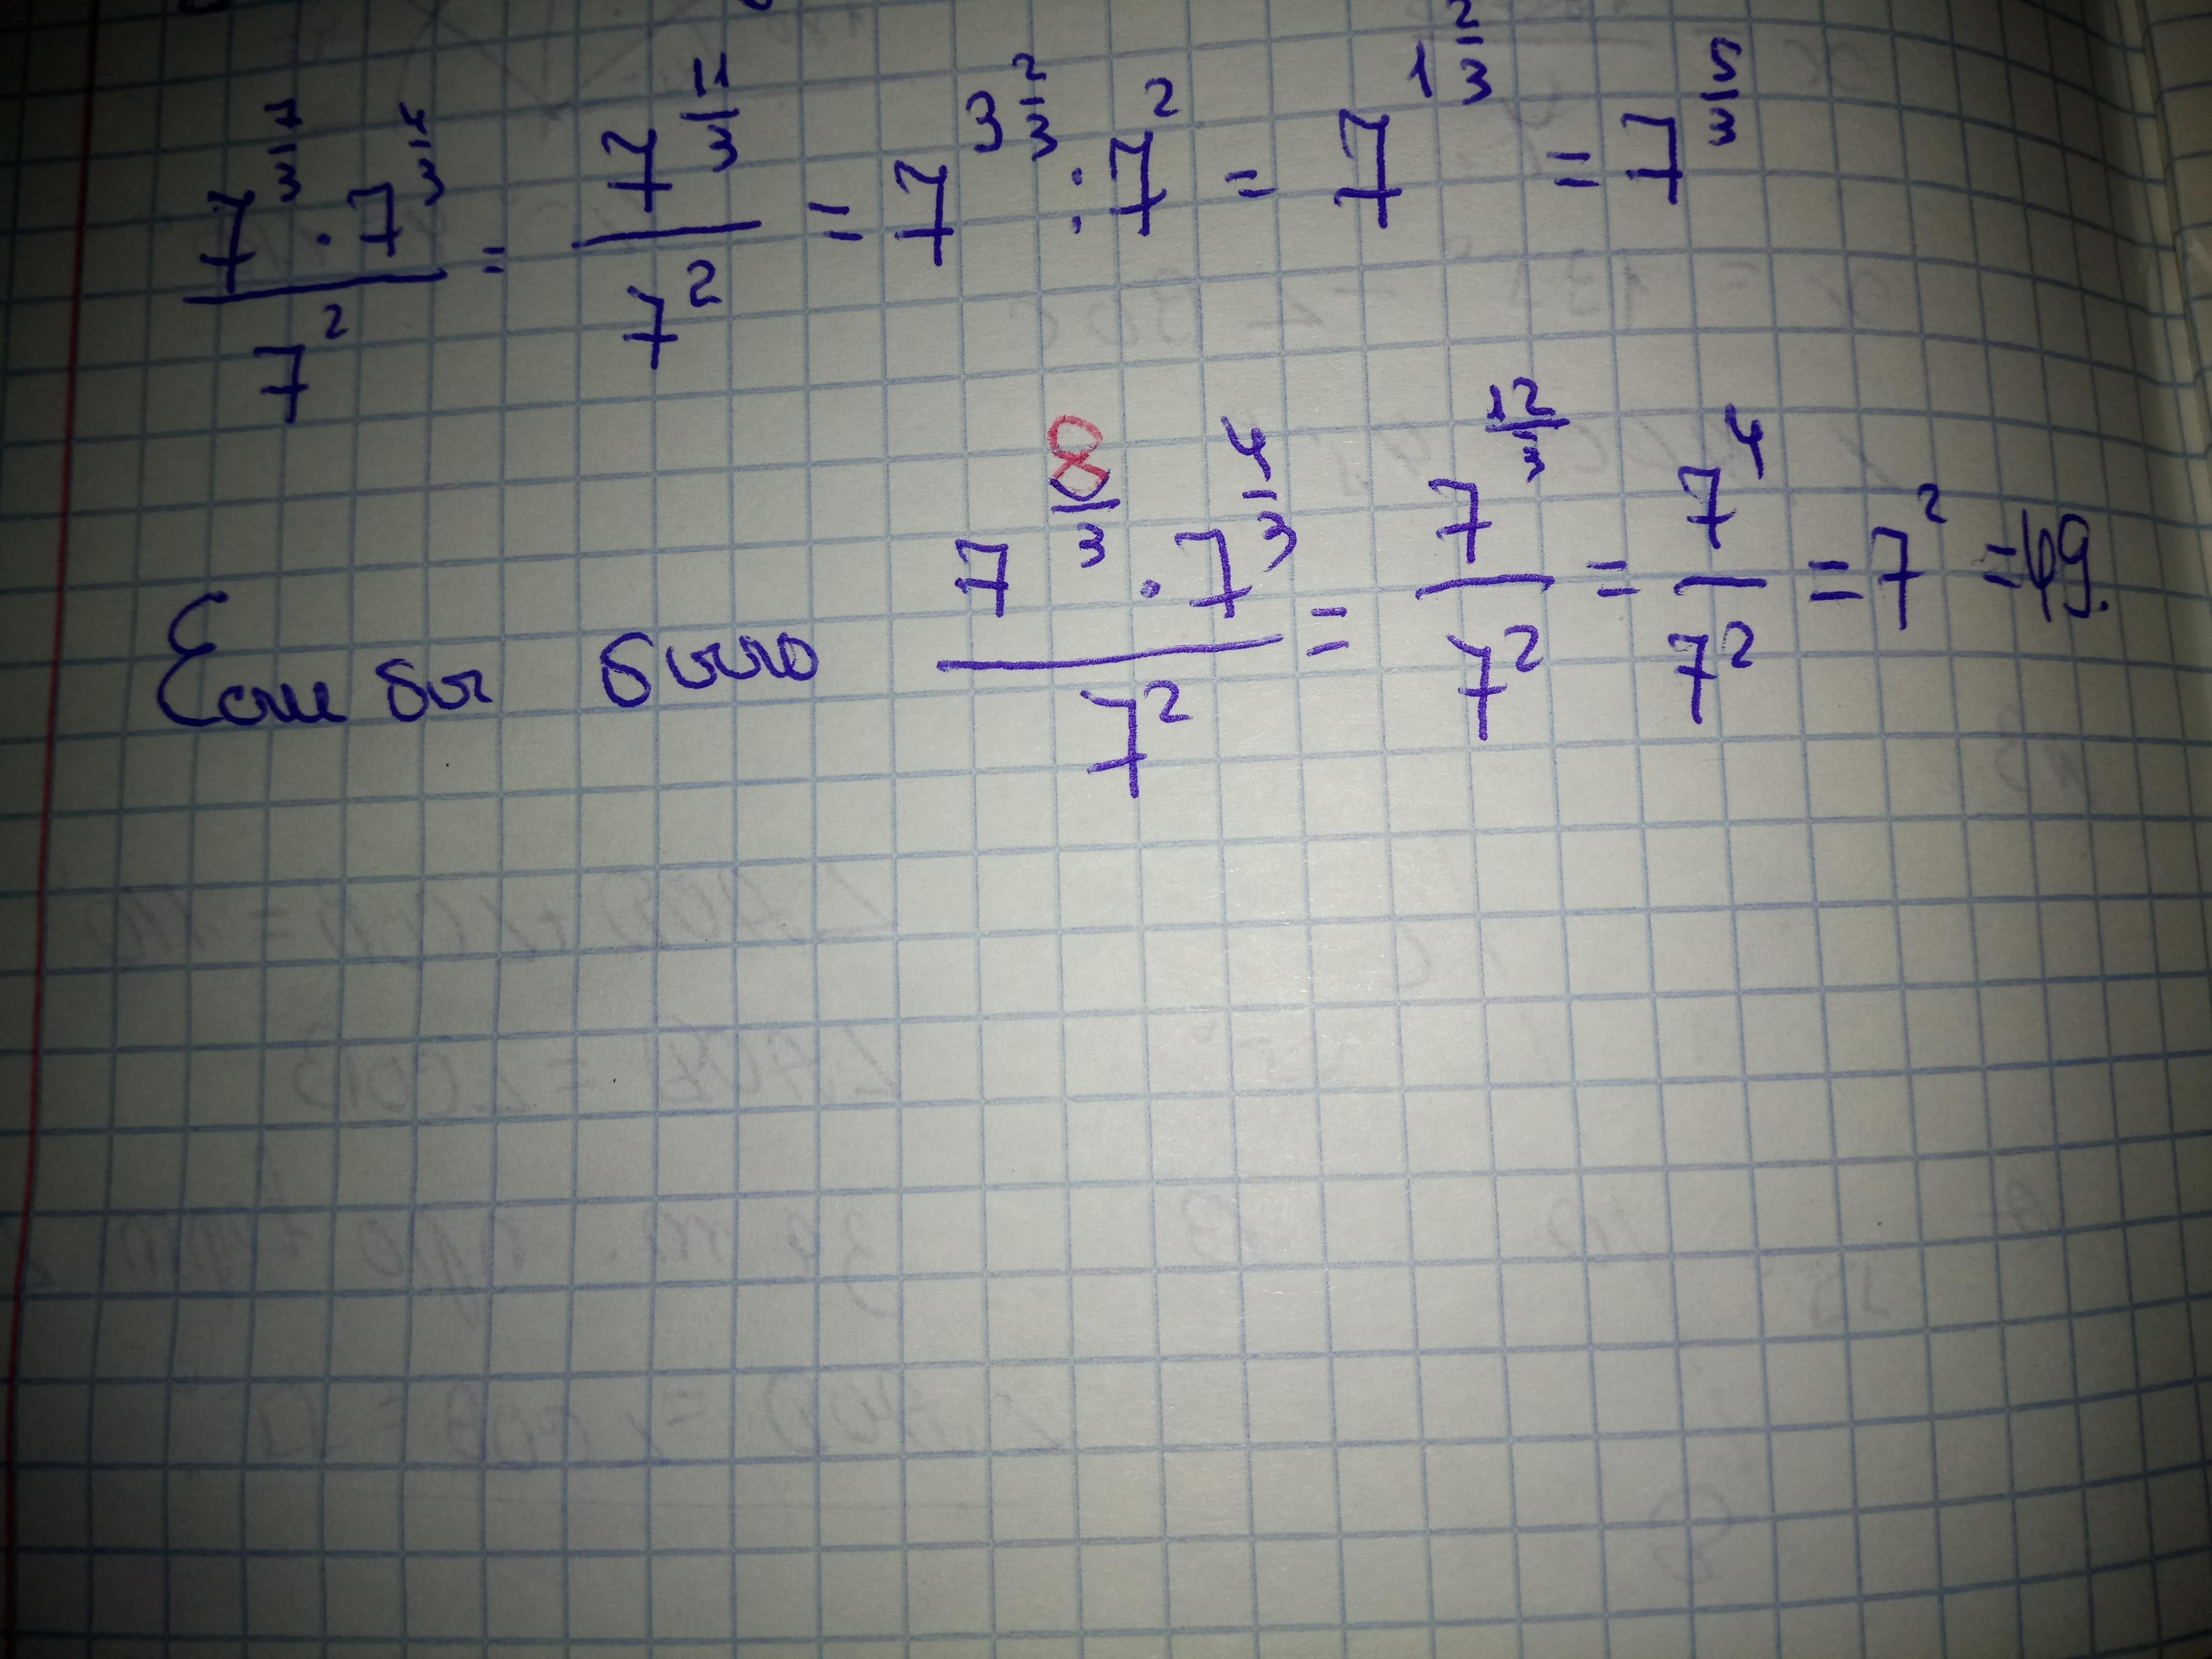 7^(7/3) · 7^(4/3) / 7^2 = 7^(11/3) / 7^2 = 7^(3 2/3) : 7^2 = 7^(1 2/3) = 7^(5/3)
Если бы было 7^(8/3) · 7^(4/3) / 7^2 = 7^(12/3) / 7^2 = 7^4 / 7^2 = 7^2 = 49.